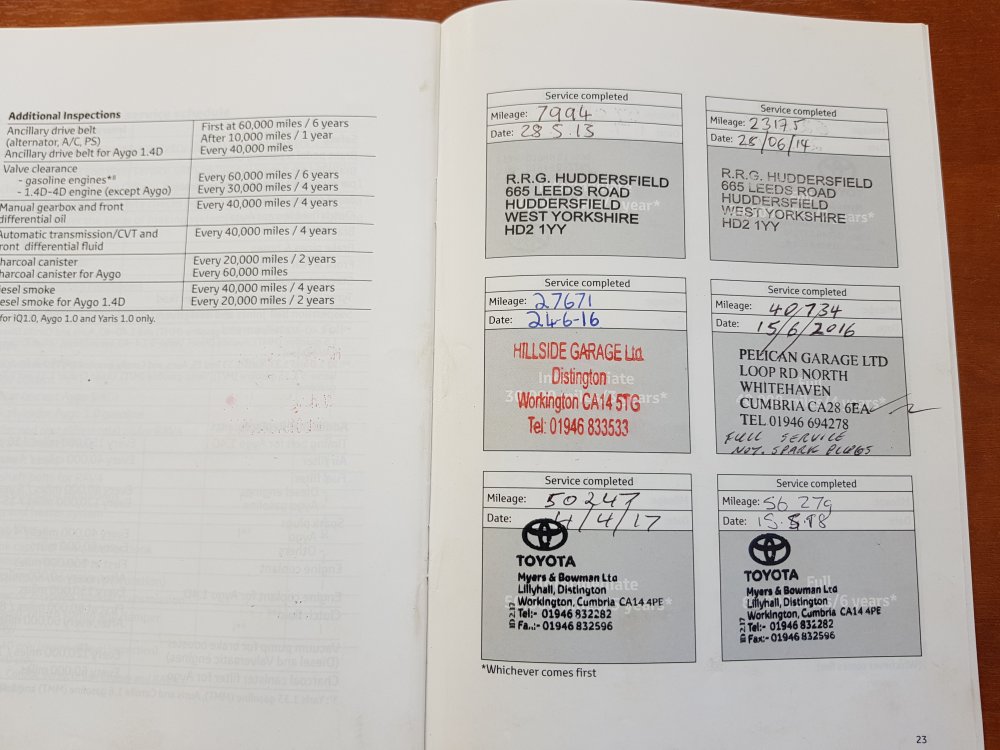 Additional Inspections
Ancillary drive belt
(alternator, A/C, PS)
Ancillary drive belt for Aygo 1.4D
First at 60,000 miles / 6 years
After 10,000 miles / 1 year
Every 40,000 miles
Valve clearance
- gasoline engines*
- 1.4D-4D engine (except Aygo)
Every 60,000 miles / 6 years
Every 30,000 miles / 4 years
Manual gearbox and front
differential oil
Every 40,000 miles / 4 years
Automatic transmission/CVT and
ront differential fluid
Every 40,000 miles / 4 years
harcoal canister
harcoal canister for Aygo
Every 20,000 miles / 2 years
Every 60,000 miles
iesel smoke
iesel smoke for Aygo 1.4D
Every 40,000 miles / 4 years
Every 20,000 miles / 2 years
for iQ1.0, Aygo 1.0 and Yaris 1.0 only.
Service completed
Mileage: 7994
Date: 28 5.13
R.R.G. HUDDERSFIELD
665 LEEDS ROAD
HUDDERSFIELD
WEST YORKSHIRE
HD2 1YY
Service completed
Mileage: 23175
Date: 25/06/14
R.R.G. HUDDERSFIELD
665 LEEDS ROAD
HUDDERSFIELD
WEST YORKSHIRE
HD2 1YY
Service completed
Mileage: 27671
Date: 24-6-16
HILLSIDE GARAGE Ltd.
Distington
Workington CA14 5TG
Tel: 01946 833533
Service completed
Mileage: 40,734
Date: 15/6/2016
PELICAN GARAGE LTD
LOOP RD NORTH
WHITEHAVEN
CUMBRIA CA28 6EA
TEL 01946 694278
FULL SERVICE
NOT. SPARK PLUGS
Service completed
Mileage: 50247
Date: 4/4/17
TOYOTA
Myers & Bowman Ltd
Lillyhall, Distington
Workington, Cumbria CA14 4PE
Tel:- 01946 832282
Fa..:- 01946 832596
Service completed
Mileage: 56279
Date: 15.5.18
TOYOTA
Myers & Bowman Ltd
Lillyhall, Distington
Workington, Cumbria CA14 4PE
Tel:- 01946 832282
Fax:- 01946 832596
*Whichever comes first
23